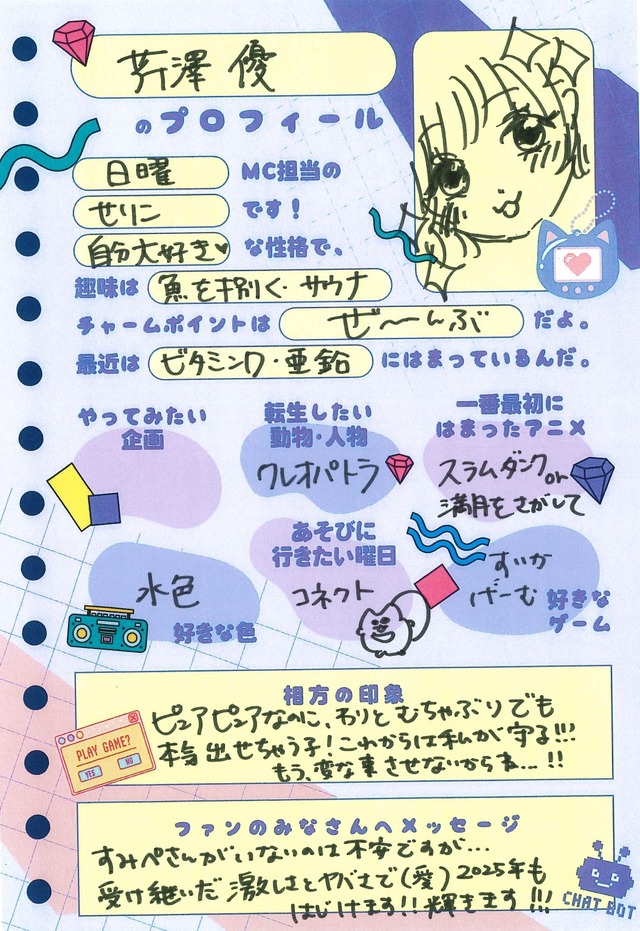 芹澤 優
のプロフィール
日曜 MC担当の
せりこ です!
自分大好き♥ な性格で、
趣味は 魚を捌く・サウナ
チャームポイントは ぜ〜んぶ だよ。
最近は ビタミンク・亜鉛 にはまっているんだ。
やってみたい
企画
転生したい
動物・人物
クレオパトラ
一番最初に
はまったアニメ
スラムダンク or
満月をさがして
水色
好きな色
あそびに
行きたい曜日
コネクト
すいか
げーむ
好きな
ゲーム
相方の印象
ピュアピュアなのに、わりとむちゃぶりでも
本気出せちゃう子!これからは私が守る!!!
もう、変な事させないからね…!!
PLAY GAME?
YES NO
ファンのみなさんへメッセージ
すみぺさんがいないのは不安ですが…
受け継いだ激しさとヤバさで(愛)2025年も
はじけます!!輝きます!!!
CHAT BOT